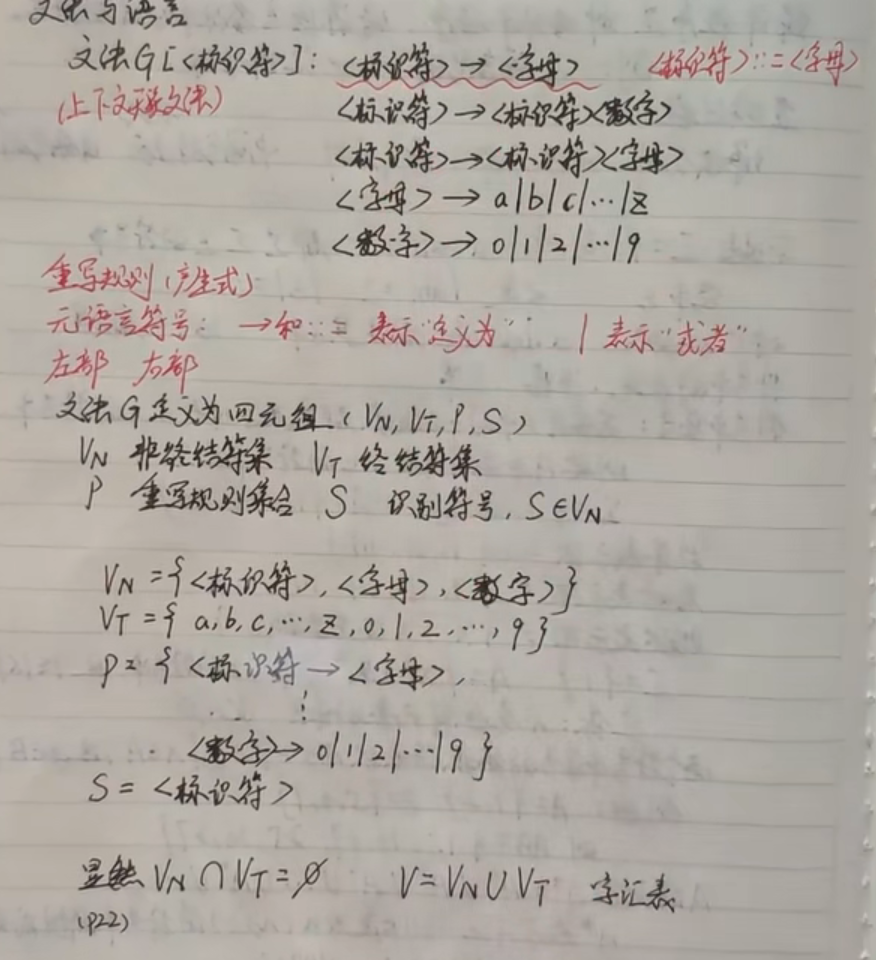 文法与语言
文法G[<标识符>]: <标识符>→<字母> <标识符>::=<字母>
(上下文无关文法) <标识符>→<标识符><数字>
<标识符>→<标识符><字母>
<字母>→ a|b|c|…|z
<数字>→ 0|1|2|…|9
重写规则(产生式)
元语言符号: →和::= 表示“定义为” | 表示“或者”
左部 右部
文法G定义为四元组(VN,VT,P,S)
VN 非终结符集 VT 终结符集
P 重写规则集合 S 识别符号,S∈VN
VN={<标识符>,<字母>,<数字>}
VT={a,b,c,…,z,0,1,2,…,9}
P={<标识符→<字母>,
⋮
<数字>→0|1|2|…|9}
S=<标识符>
显然VN∩VT=∅ V=VN∪VT 字汇表
(P22)